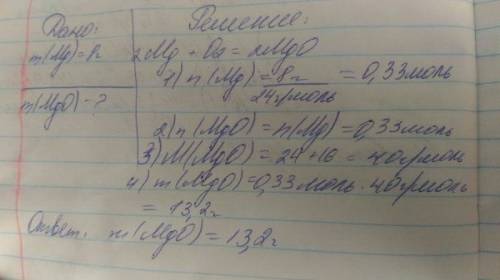 Дано:
m(Mg)=8г
m(MgO)-?
Решение:
2Mg + O2 = 2MgO
1) n(Mg) = 8г / 24г/моль = 0,33моль
2) n(MgO) = n(Mg) = 0,33моль
3) M(MgO) = 24+16 = 40г/моль
4) m(MgO) = 0,33моль · 40г/моль
= 13,2г
Ответ: m(MgO) = 13,2г